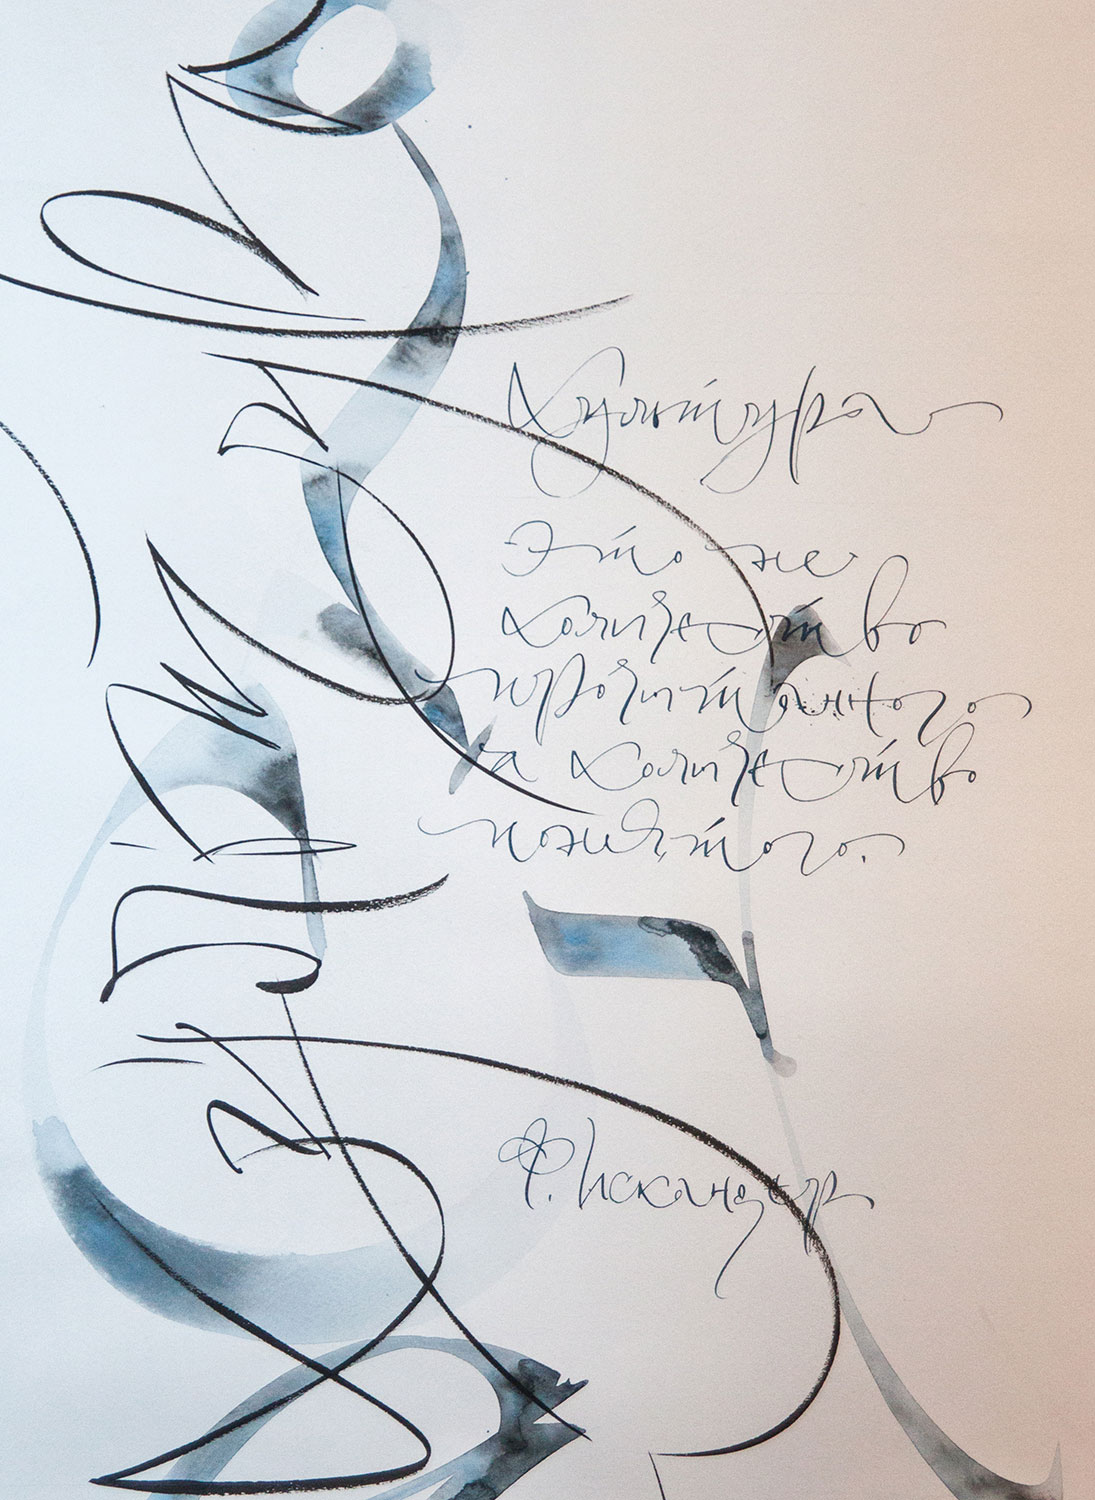 Культура
Это не
количество
прочитанного
а количество
понятого.
Ф. Искандер